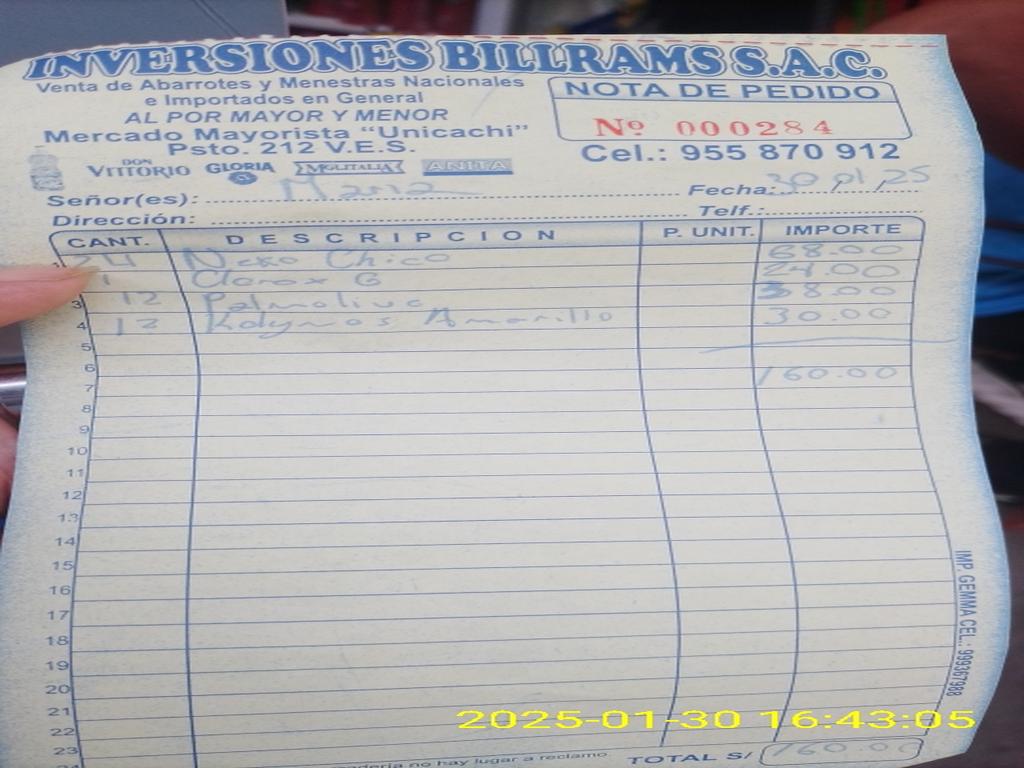 INVERSIONES BILLRAMS S.A.C.
Venta de Abarrotes y Menestras Nacionales
e Importados en General
AL POR MAYOR Y MENOR
Mercado Mayorista "Unicachi"
Psto. 212 V.E.S.
NOTA DE PEDIDO
Nº 000284
Cel.: 955 870 912
DON VITTORIO GLORIA MOLITALIA ANITA
Señor(es): Maria Fecha: 30 01 25
Dirección: Telf.:
CANT. DESCRIPCION P. UNIT. IMPORTE
1 24 Nexo Chico 68.00
1 Clorox G 24.00
3 12 Palmolive 38.00
4 12 Kolynos Amarillo 30.00
5
6 160.00
7
8
9
10
11
12
13
14
15
16
17
18
19
20
21
22
23
no hay lugar a reclamo TOTAL S/ 160.00
IMP. GEMMA CEL.: 999367988
2025-01-30 16:43:05